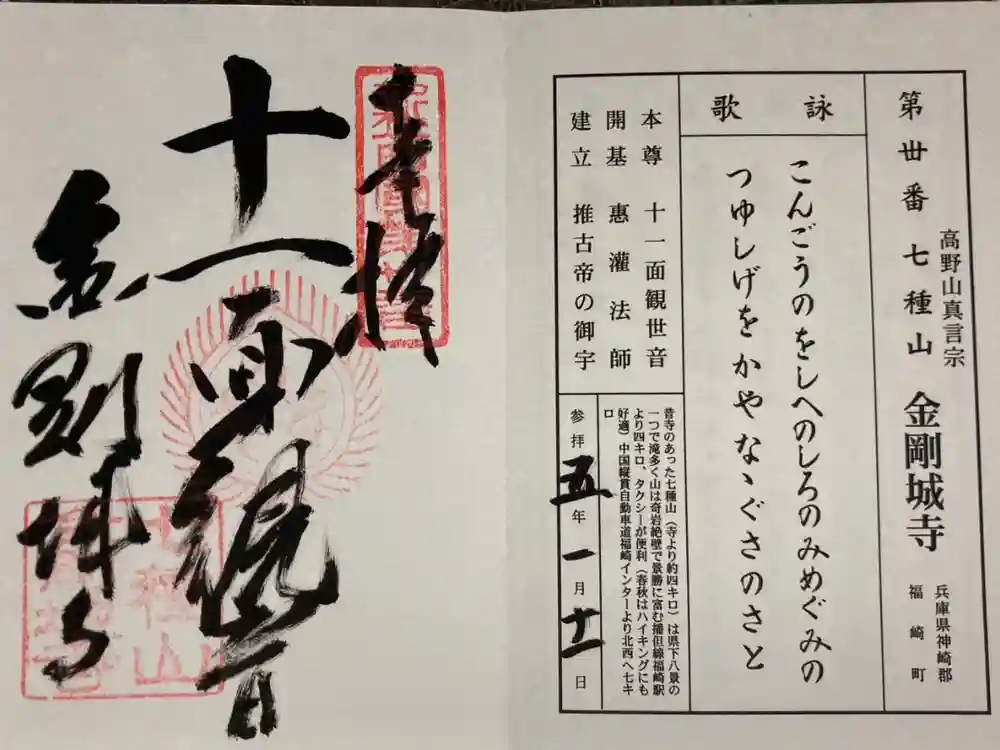 第丗番七種山
高野山真言宗
金剛城寺
兵庫県神崎郡
福崎町
詠歌
こんごうのをしへのしろのみめぐみの
つゆしげをかやなゝぐさのさと
本尊 十一面観世音
開基 惠灌法師
建立 推古帝の御宇
昔寺のあった七種山（寺より約四キロ）は県下八景の
一つで滝多く山は奇岩絶壁で景勝に富む播但線福崎駅
より四キロ、タクシーが便利（春秋はハイキングにも
好適）中国縦貫自動車道福崎インターより北西へ七キ
ロ
参拝五年一月十一日
奉拝
十一面観音
金剛城寺
七種山